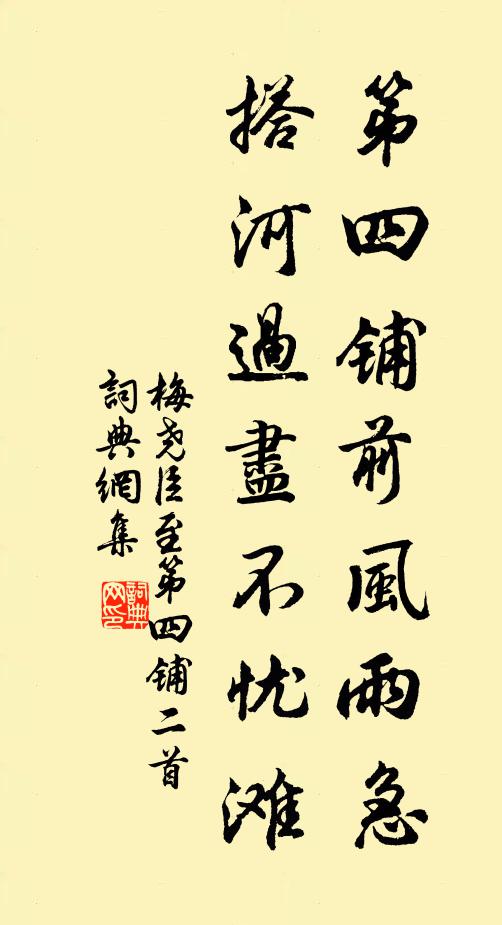 第四铺前風雨急
搭河過盡不忧滩
梅尧臣至第四铺二首
詞典網集
詞典网印